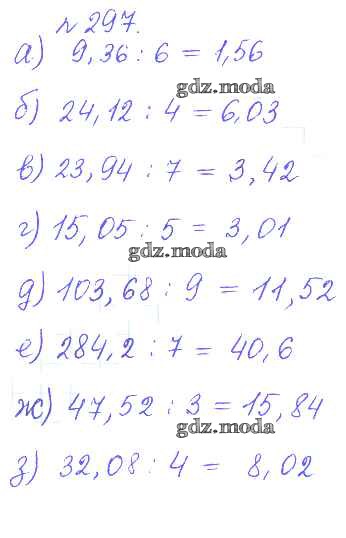 № 297.
а) 9,36 : 6 = 1,56
gdz.moda
б) 24,12 : 4 = 6,03
в) 23,94 : 7 = 3,42
г) 15,05 : 5 = 3,01
gdz.moda
д) 103,68 : 9 = 11,52
е) 284,2 : 7 = 40,6
ж) 47,52 : 3 = 15,84
gdz.moda
з) 32,08 : 4 = 8,02